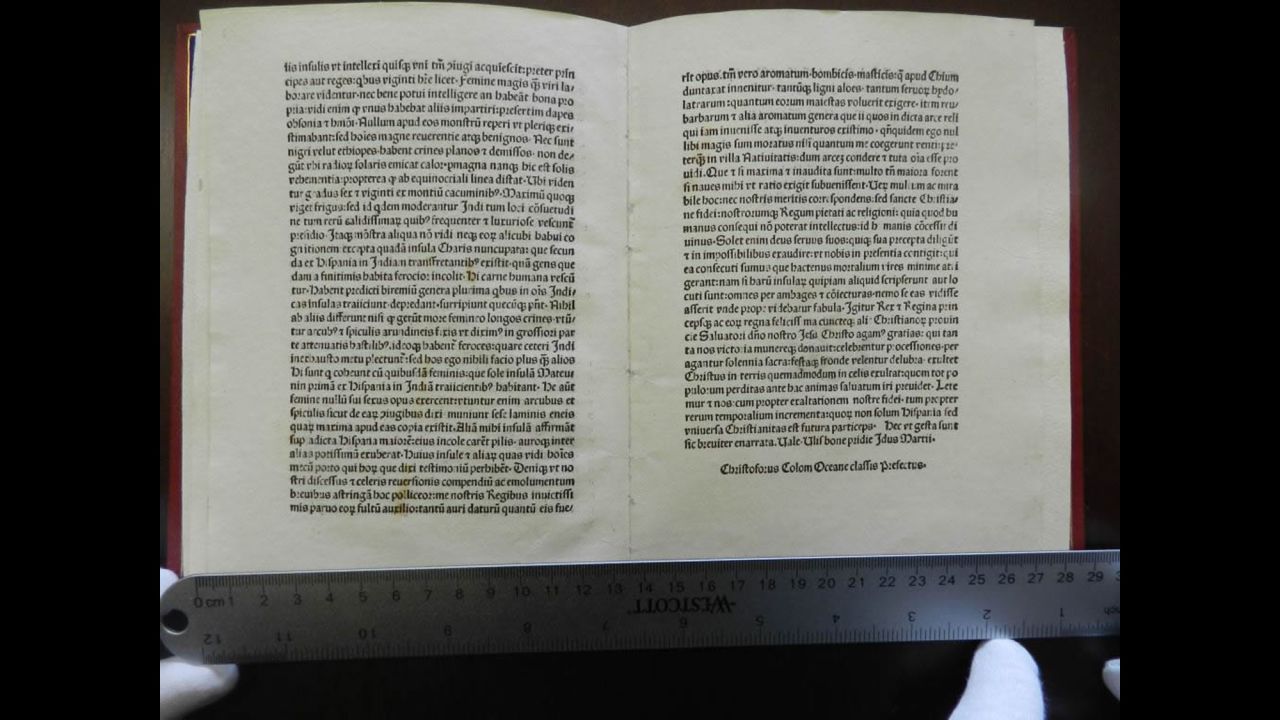 lis insulis vt intellexi quisq̨ vni tm̄ ↄiugi acquiescit: preter prin
cipes aut reges: qbus viginti h̄re licet. Femine magis q̄ȝ viri la⸗
borare videntur. nec bene potui intelligere an habeāt bona pro
pria: vidi enim ꝙ vnus habebat aliis impartiri: presertim dapes
obsonia ⁊ hm̄oi. Nullum apud eos monstrū reperi vt pleriqȝ exi⸗
stimabant: sed hoīes magne reuerentie atqȝ benignos. Nec sunt
nigri velut ethiopes. habent crines planos ⁊ demissos. non de⸗
gūt vbi radioꝝ solaris emicat calor. ꝓmagna nanqȝ hic est solis
vehementia: propterea ꝙ ab equinoctiali linea distat. Vbi viden
tur gradus sex ⁊ viginti ex montiū cacuminibꝰ. Maximū quoqȝ
viget frigus: sed id qdem moderantur Indi tum loci cōsuetudi
ne tum rerū calidissimaꝝ quibꝰ frequenter ⁊ luxuriose vescunt̄
presidio. Itaqȝ mōstra aliqua nō vidi neqȝ eoꝝ alicubi habui co
gnitionem excepta quadā insula Charis nuncupata: que secun
da ex Hispania in Indiam transfretantibꝰ existit. quā gens que
dam a finitimis habita ferocior incolit. Hi carne humana vescū
tur. Habent predicti biremiū genera plurima qbus in oīs Indi⸗
cas insulas traiiciunt. depredant. surripiunt quecūqȝ pn̄t. Nihil
ab aliis differunt nisi ꝙ gerūt more femineo longos crines. vtū⸗
tur arcubꝰ ⁊ spiculis arundineis fixis vt diximꝰ in grossiori par
te attenuatis hastilibꝰ. ideoqȝ habent̄ feroces: quare ceteri Indi
inexhausto metu plectunt̄: sed hos ego nihili facio plus q̄ȝ alios
Hi sunt q coheunt cū quibusdā feminis: que sole insulā Mateu⸗
nin primā ex Hispania in Indiā traiicientibꝰ habitant. He aūt
femine nullū sui sexus opus exercent: vtuntur enim arcubus et
spiculis sicut de eaꝝ ↄiugibus dixi. muniunt sese laminis eneis
quaꝝ maxima apud eas copia existit. Aliā mihi insulā affirmāt
sup̄adicta Hispana maiorē: eius incole carēt pilis. auroqȝ inter
alias potissimū exuberat. Huius insule ⁊ aliaꝝ quas vidi hoīes
mecū porto qui hoꝝ que dixi testimoniū perhibēt. Deniqȝ vt no
stri discessus ⁊ celeris reuersionis compendiū ac emolumentum
breuibus astringā hoc polliceor: me nostris Regibus inuictissi
mis paruo eoꝝ fultū auxilio: tantū auri daturū quantū eis fue⸗
rit opus. tm̄ vero aromatum. bombicis. masticis: q̄ apud Chium
duntaxat inuenitur. tantūqȝ ligni aloes. tantum seruoꝝ hydo⸗
latrarum: quantum eorum maiestas voluerit exigere. item reu⸗
barbarum ⁊ alia aromatum genera que ii quos in dicta arce reli
qui iam inuenisse atqȝ inuenturos existimo. qn̄quidem ego nul
libi magis sum moratus nisi quantum me coegerunt venti: pre⸗
terqȝ in villa Natiuitatis: dum arcem condere ⁊ tuta oīa esse pro
uidi. Que ⁊ si maxima ⁊ inaudita sunt: multo tn̄ maiora forent
si naues mihi vt ratio exigit subuenissent. Veꝝ multum ac mira
bile hoc: nec nostris meritis correspondens: sed sancte Christia⸗
ne fidei: nostrorumqȝ Regum pietati ac religioni: quia quod hu
manus consequi nō poterat intellectus: id humanis cōcessit di
uinus. Solet enim deus seruos suos: quiqȝ sua precepta diligūt
⁊ in impossibilibus exaudire: vt nobis in presentia contigit: qui
ea consecuti sumus que hactenus mortalium vires minime atti
gerant: nam si harū insulaꝝ quipiam aliquid scripserunt aut lo
cuti sunt: omnes per ambages ⁊ cōiecturas. nemo se eas vidisse
asserit vnde prope videbatur fabula. Igitur Rex ⁊ Regina prin
cepsqȝ ac eoꝝ regna felicissima cuncteqȝ alie Christianoꝝ prouin
cie Saluatori dn̄o nostro Jesu Christo agamꝰ gratias: qui tan
ta nos victoria munereqȝ donauit: celebrentur processiones. per
agantur solennia sacra: festaqȝ fronde velentur delubra. exultet
Christus in terris quemadmodum in celis exultat: quom tot po
pulorum perditas ante hac animas saluatum iri preuidet. Lete
mur ⁊ nos: cum propter exaltationem nostre fidei. tum propter
rerum temporalium incrementa: quoꝝ non solum Hispania sed
vniuersa Christianitas est futura particeps. Hec vt gesta sunt
sic breuiter enarrata. Vale. Vlisbone pridie Idus Martii.
Christoforus Colom Oceane classis Prefectus.
0 cm 1 2 3 4 5 6 7 8 9 10 11 12 13 14 15 16 17 18 19 20 21 22 23 24 25 26 27 28 29
WESTCOTT
12 11 10 9 8 7 6 5 4 3 2 1 inch